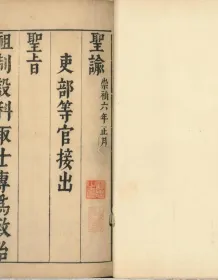 聖諭
崇禎六年正月
吏部等官接出
聖旨
祖制設科取士專為政治